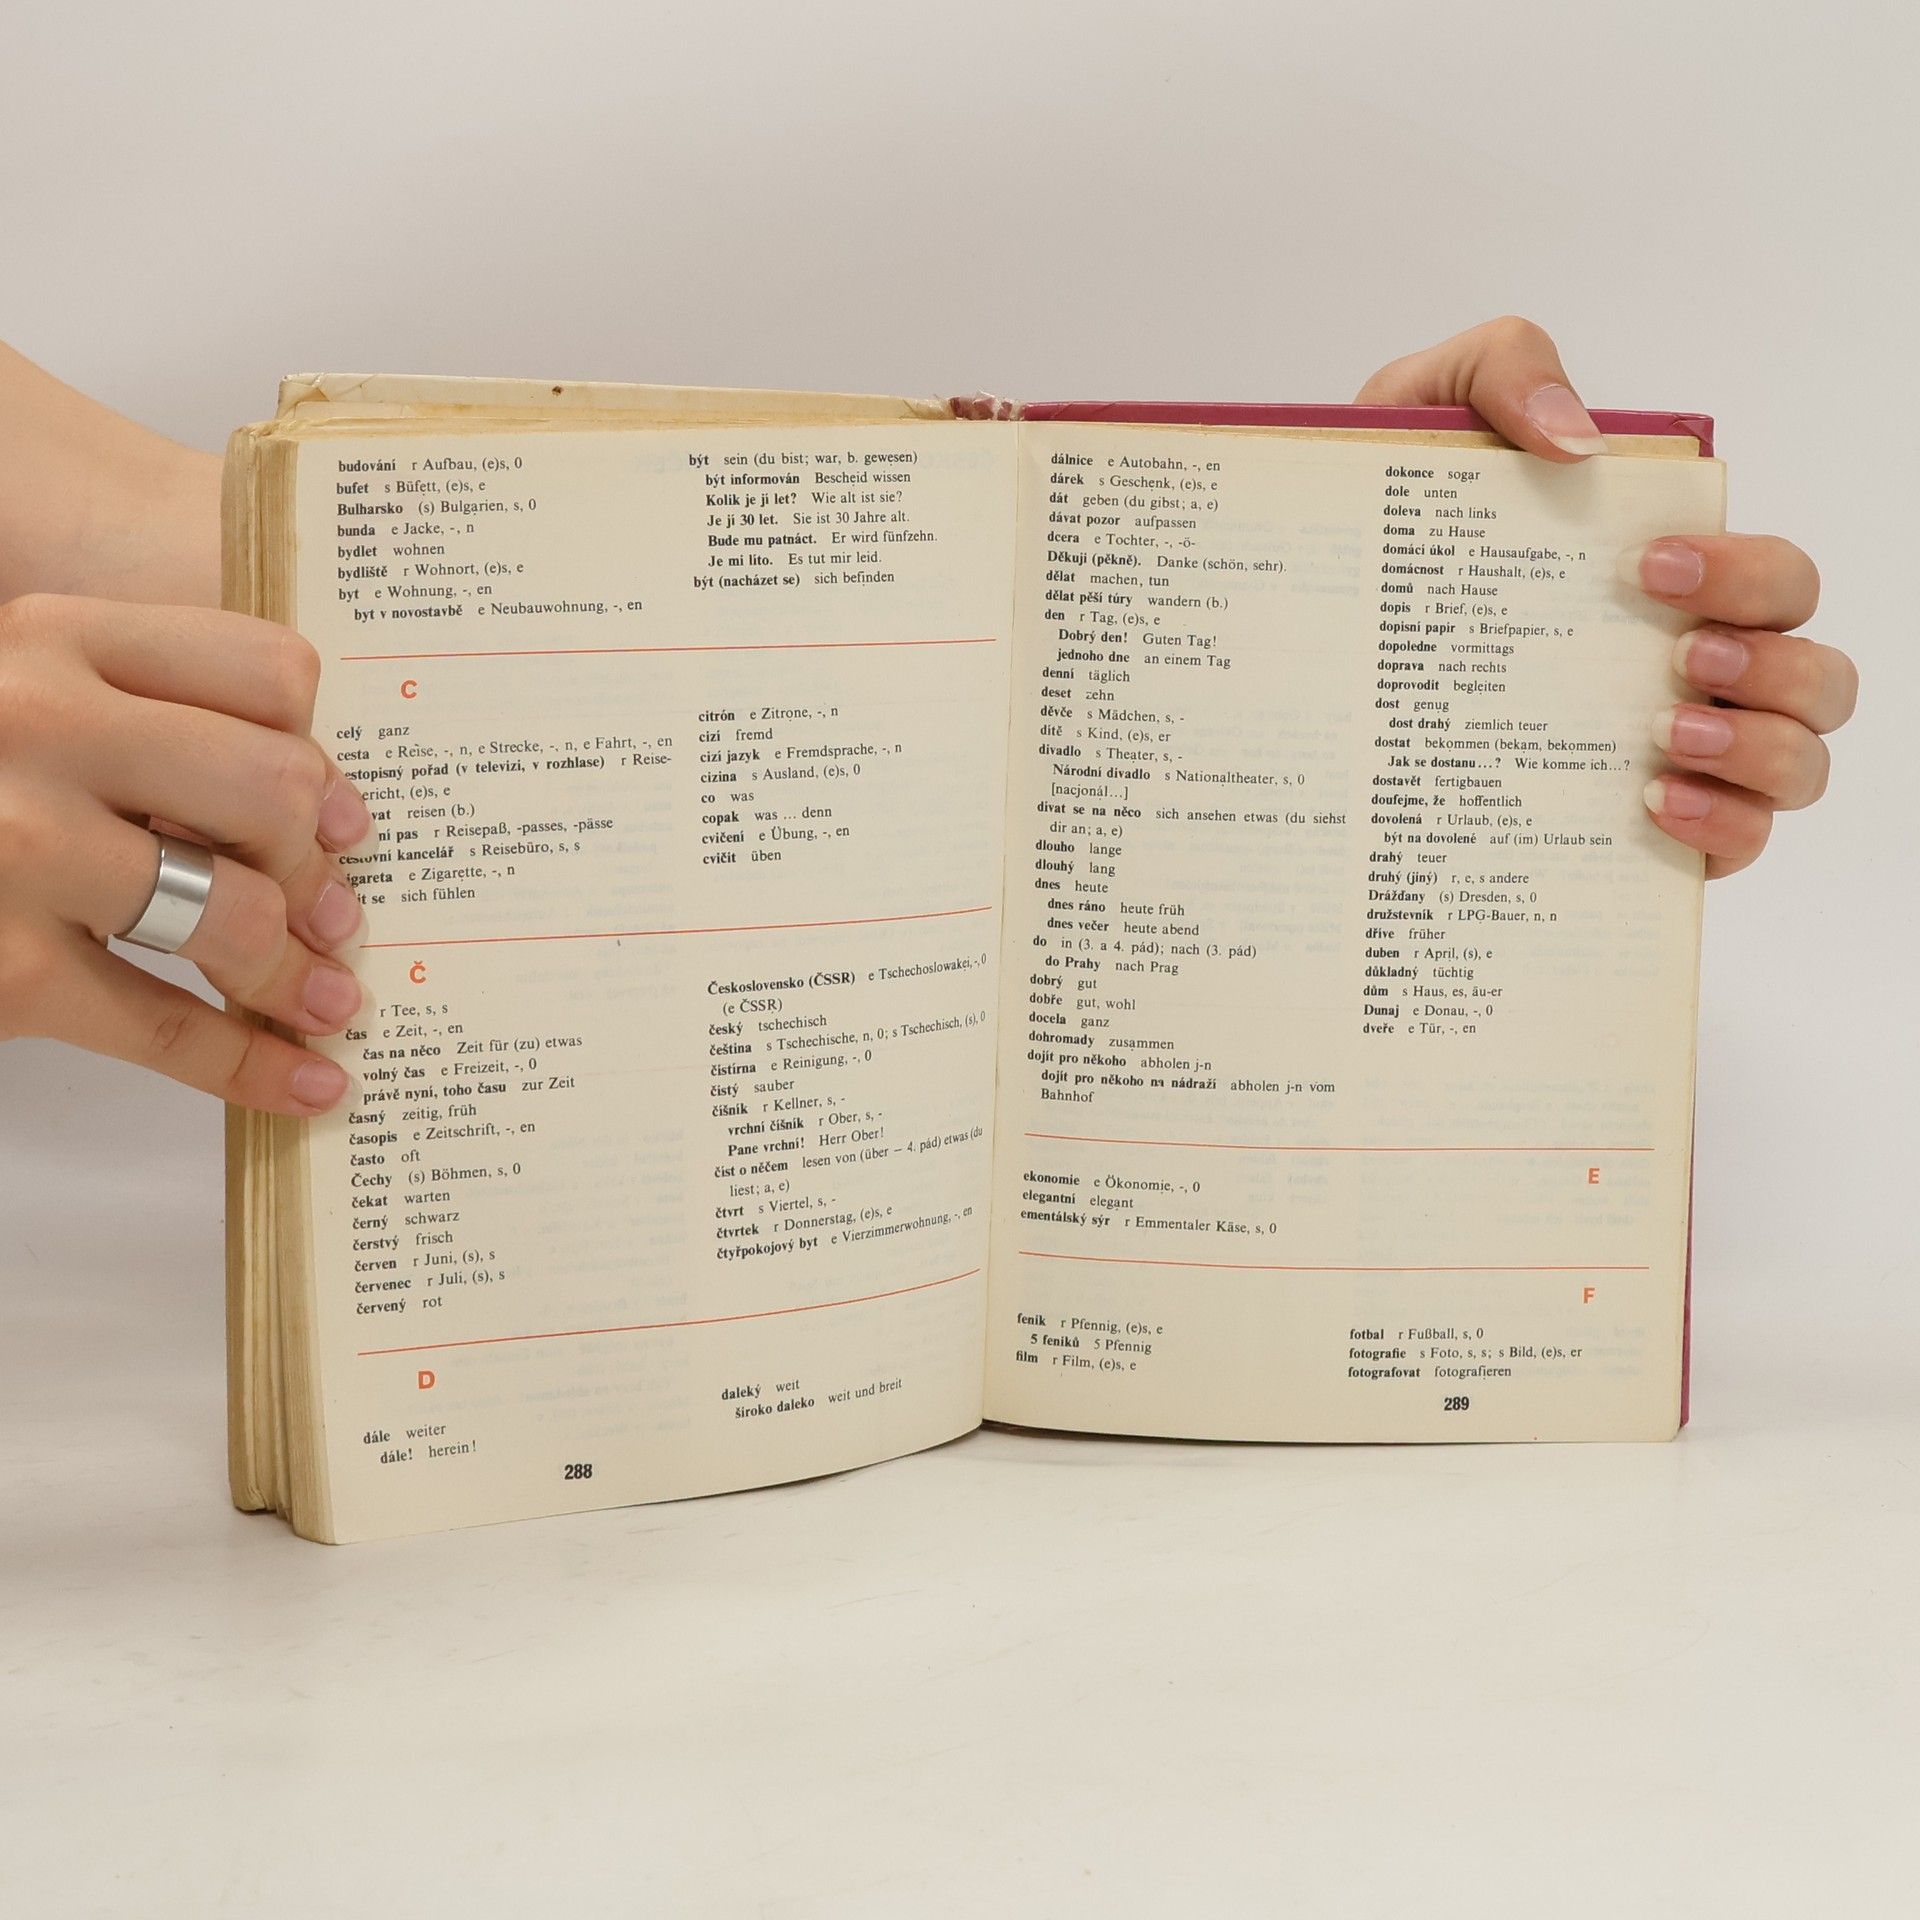 budování r Aufbau, (e)s, 0
bufet s Büfett, (e)s, e
Bulharsko (s) Bulgarien, s, 0
bunda e Jacke, -, n
bydlet wohnen
bydliště r Wohnort, (e)s, e
byt e Wohnung, -, en
byt v novostavbě e Neubauwohnung, -, en
být sein (du bist; war, b. gewesen)
být informován Bescheid wissen
Kolik je jí let? Wie alt ist sie?
Je jí 30 let. Sie ist 30 Jahre alt.
Bude mu patnáct. Er wird fünfzehn.
Je mi líto. Es tut mir leid.
být (nacházet se) sich befinden
C
celý ganz
cesta e Reise, -, n, e Strecke, -, n, e Fahrt, -, en
estopisný pořad (v televizi, v rozhlase) r Reise-
ericht, (e)s, e
vat reisen (b.)
ní pas r Reisepaß, -passes, -pässe
cestovní kancelář s Reisebüro, s, s
igareta e Zigarette, -, n
ít se sich fühlen
citrón e Zitrone, -, n
cizí fremd
cizí jazyk e Fremdsprache, -, n
cizina s Ausland, (e)s, 0
co was
copak was ... denn
cvičení e Übung, -, en
cvičit üben
Č
r Tee, s, s
čas e Zeit, -, en
čas na něco Zeit für (zu) etwas
volný čas e Freizeit, -, 0
právě nyní, toho času zur Zeit
časný zeitig, früh
časopis e Zeitschrift, -, en
často oft
Čechy (s) Böhmen, s, 0
čekat warten
černý schwarz
čerstvý frisch
červen r Juni, (s), s
červenec r Juli, (s), s
červený rot
Československo (ČSSR) e Tschechoslowakei, -, 0
(e ČSSR)
český tschechisch
čeština s Tschechische, n, 0; s Tschechisch, (s), 0
čistírna e Reinigung, -, 0
čistý sauber
číšník r Kellner, s, -
vrchní číšník r Ober, s, -
Pane vrchní! Herr Ober!
číst o něčem lesen von (über – 4. pád) etwas (du
liest; a, e)
čtvrt s Viertel, s, -
čtvrtek r Donnerstag, (e)s, e
čtyřpokojový byt e Vierzimmerwohnung, -, en
D
dále weiter
dále! herein!
daleký weit
široko daleko weit und breit
288
dálnice e Autobahn, -, en
dárek s Geschenk, (e)s, e
dát geben (du gibst; a, e)
dávat pozor aufpassen
dcera e Tochter, -, -ö-
Děkuji (pěkně). Danke (schön, sehr).
dělat machen, tun
dělat pěší túry wandern (b.)
den r Tag, (e)s, e
Dobrý den! Guten Tag!
jednoho dne an einem Tag
denní täglich
deset zehn
děvče s Mädchen, s, -
dítě s Kind, (e)s, er
divadlo s Theater, s, -
Národní divadlo s Nationaltheater, s, 0
[nacjonál...]
dívat se na něco sich ansehen etwas (du siehst
dir an; a, e)
dlouho lange
dlouhý lang
dnes heute
dnes ráno heute früh
dnes večer heute abend
do in (3. a 4. pád); nach (3. pád)
do Prahy nach Prag
dobrý gut
dobře gut, wohl
docela ganz
dohromady zusammen
dojít pro někoho abholen j-n
dojít pro někoho na nádraží abholen j-n vom
Bahnhof
dokonce sogar
dole unten
doleva nach links
doma zu Hause
domácí úkol e Hausaufgabe, -, n
domácnost r Haushalt, (e)s, e
domů nach Hause
dopis r Brief, (e)s, e
dopisní papír s Briefpapier, s, e
dopoledne vormittags
doprava nach rechts
doprovodit begleiten
dost genug
dost drahý ziemlich teuer
dostat bekommen (bekam, bekommen)
Jak se dostanu...? Wie komme ich...?
dostavět fertigbauen
doufejme, že hoffentlich
dovolená r Urlaub, (e)s, e
být na dovolené auf (im) Urlaub sein
drahý teuer
druhý (jiný) r, e, s andere
Drážďany (s) Dresden, s, 0
družstevník r LPG-Bauer, n, n
dříve früher
duben r April, (s), e
důkladný tüchtig
dům s Haus, es, äu-er
Dunaj e Donau, -, 0
dveře e Tür, -, en
E
ekonomie e Ökonomie, -, 0
elegantní elegant
ementálský sýr r Emmentaler Käse, s, 0
F
fenik r Pfennig, (e)s, e
5 feniků 5 Pfennig
film r Film, (e)s, e
fotbal r Fußball, s, 0
fotografie s Foto, s, s; s Bild, (e)s, er
fotografovat fotografieren
289